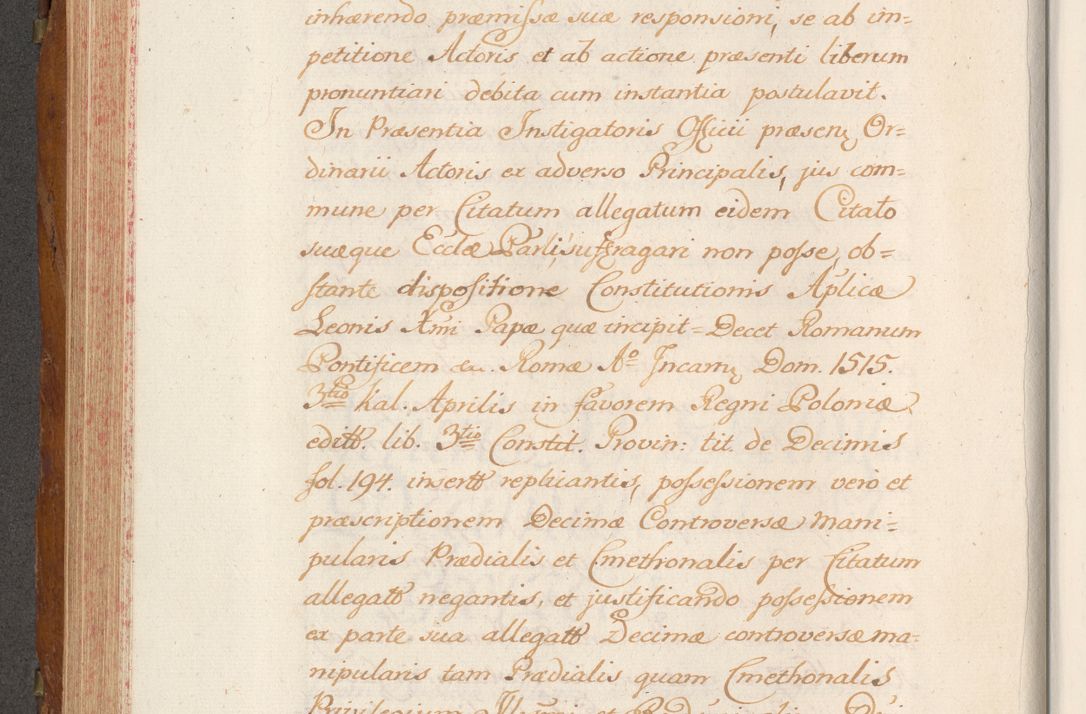 inhærendo præmissæ suæ responsioni, se ab im=
petitione Actoris et ab actione præsenti liberum
pronuntiari debita cum instantia postulavit.
In Præsentia Instigatoris Officii præsenz Or=
dinarii Actoris ex adverso Principalis, jus com=
mune per Citatum allegatum eidem Citato
suæque Ecclæ Parli, suffragari non posse, ob=
stante dispositione Constitutionis Aplicæ
Leonis Xmi Papæ quæ incipit = Decet Romanum
Pontificem &c. Romæ Ao Incarnz Dom. 1515.
3tio Kal. Aprilis in favorem Regni Poloniæ
editt. lib. 3tio Constit. Provin: tit. de Decimis
fol. 194. insertt replicantis, possessionem vero et
præscriptionem Decimæ Controversæ Mani=
pularis Prædialis et Cmethonalis per Citatum
allegatt negantis, et justificando possessionem
ex parte sua allegatt Decimæ controversæ ma=
nipularis tam Prædialis quam Cmethonalis
Privilegium